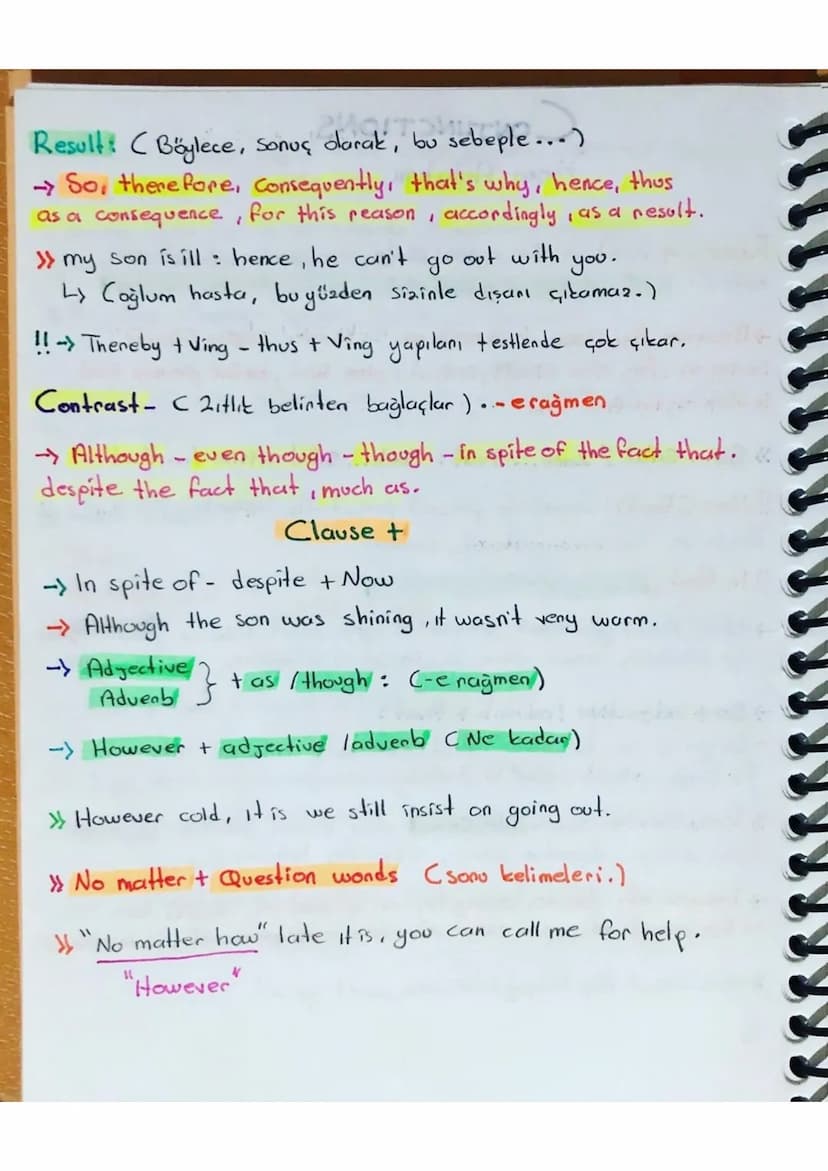 Result: ( Böylece, sonuç olarak, bu sebeple...)
→ So, therefore, consequently, that's why, hence, thus
as a consequence, for this reason, accordingly, as a result.
» my son is ill : hence, he can't go out with you.
↳ (oğlum hasta, bu yüzden sizinle dışarı çıkamaz.)
!! → Thereby + Ving - thus + Ving yapıları testlerde çok çıkar.
Contrast - ( Zıtlık belirten bağlaçlar ). -e rağmen
→ Although - even though - though - in spite of the fact that.
despite the fact that, much as.
Clause +
→ In spite of - despite + Now
→ Although the son was shining, it wasn't very warm.
→ Adjective
Adverb } + as / though : (-e rağmen)
→ However + adjective / adverb ( Ne kadar)
» However cold, it is we still insist on going out.
» No matter + Question words (soru kelimeleri.)
» "No matter how" late it is, you can call me for help.
"However"